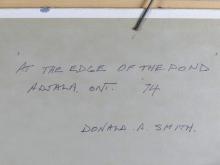 "AT THE EDGE OF THE POND
ADJALA, ONT. 74
DONALD A. SMITH.